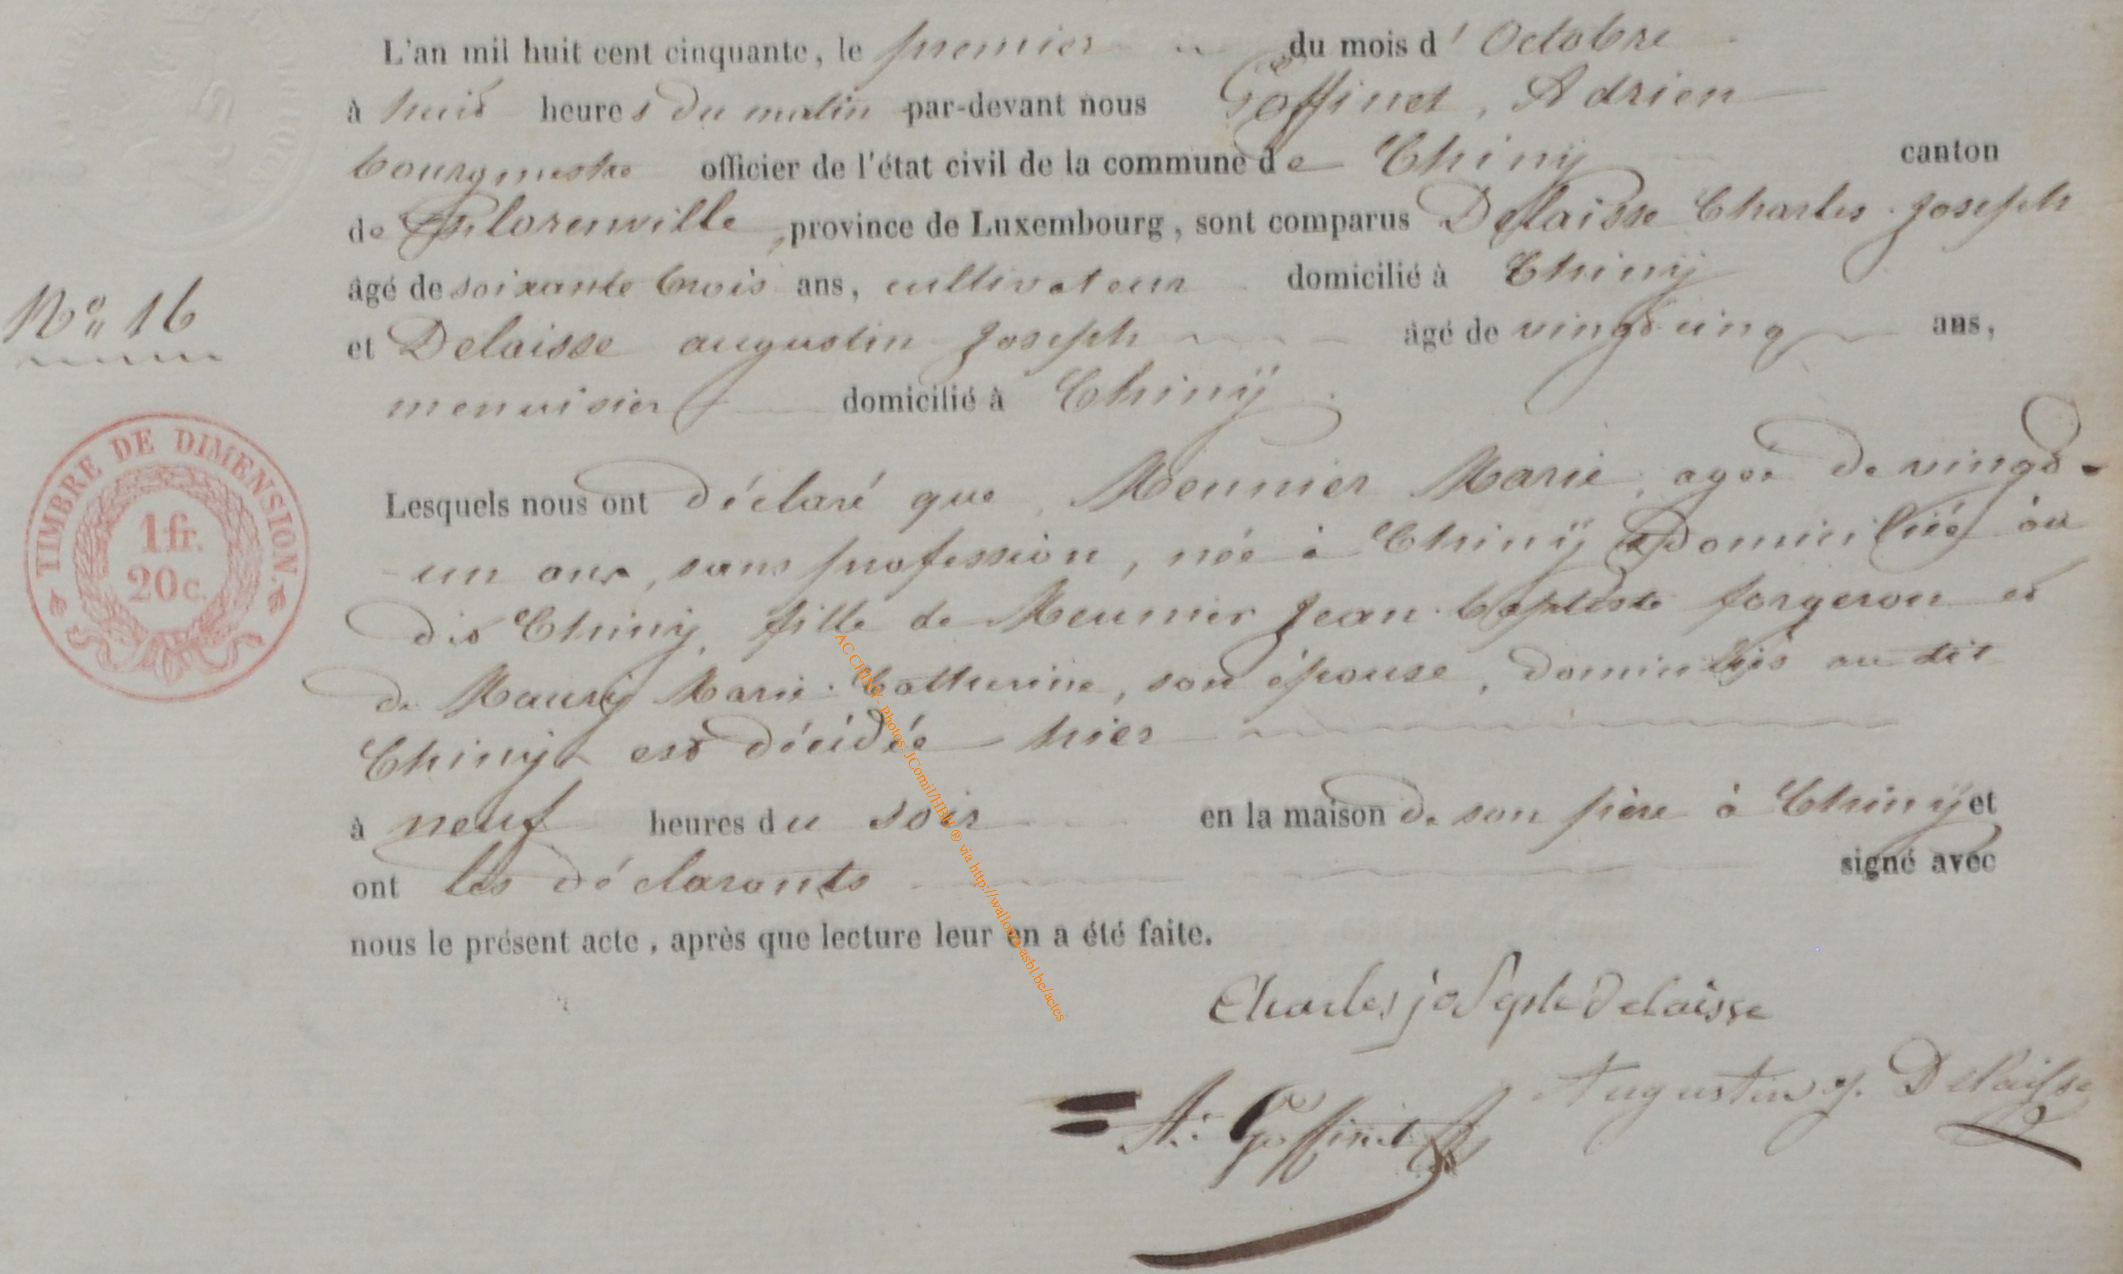 L'an mil huit cent cinquante, le premier du mois d'Octobre
à huit heures du matin par-devant nous Goffinet, Adrien
bourgmestre officier de l'état civil de la commune de Chiny canton
de Florenville, province de Luxembourg, sont comparus Delaisse Charles-Joseph
âgé de soixante trois ans, cultivateur domicilié à Chinÿ
N° 16
et Delaisse augustin Joseph âgé de vingt cinq ans,
menuisier domicilié à Chinÿ.
TIMBRE DE DIMENSION.
1 fr.
20 c.
Lesquels nous ont déclaré que, Meunier Marie, agée de vingt-
un ans, sans profession, née à Chinÿ domiciliée au
dit Chiny, fille de Meunier Jean-baptiste forgeron et
de Maury Marie-Catherine, son épouse, domiciliés au dit
Chiny est décédée hier
à neuf heures du soir en la maison de son père à Chinÿ et
ont les déclarants signé avec
nous le présent acte, après que lecture leur en a été faite.
Charles joseph Delaisse
Augustin J. Delaisse
A. Goffinet
AC CHINY photos JComil/HBM ® via http://wallonia-asbl.be/actes